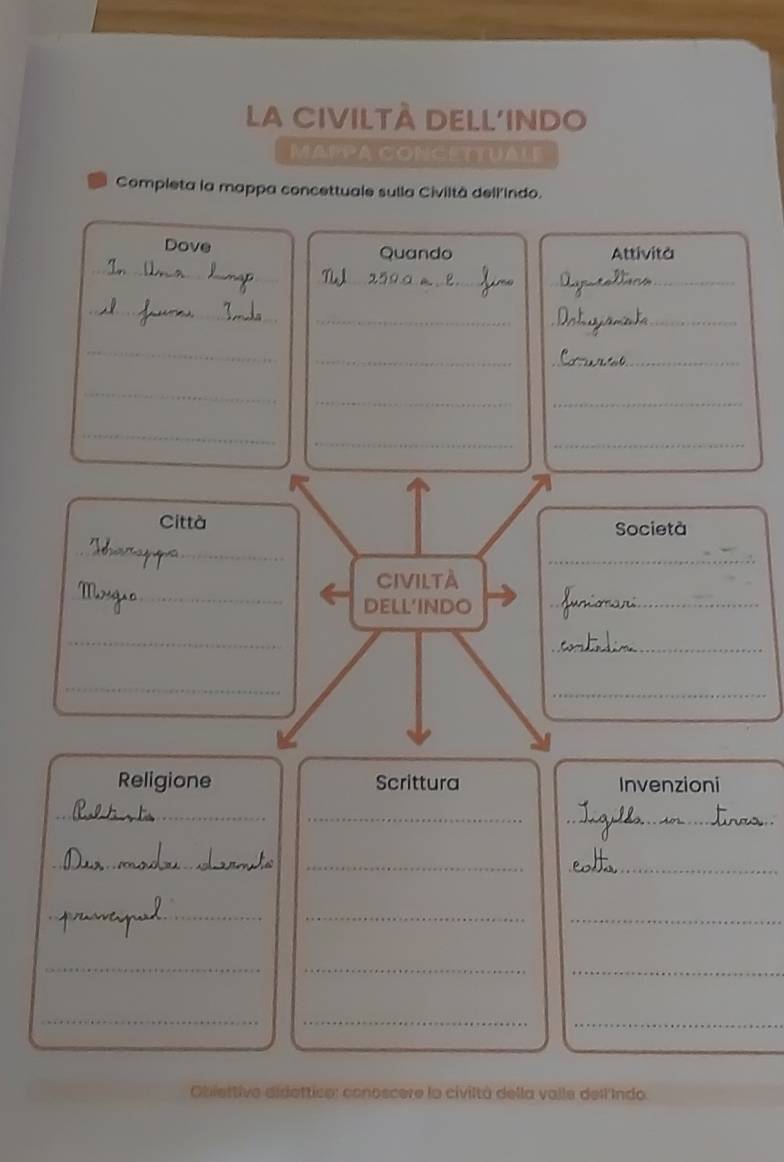 LA CIVILTÀ DELL'INDO
MAPPA CONCETTUALE
Completa la mappa concettuale sulla Civiltà dell'Indo.
Dove
In Una lungo
il fiume Indo
Quando
Nel 2500 a. e. fino
Attività
Agricoltura
Artigianato
Comercio
Città
Harappa
Società
funzionari
contadini
CIVILTÀ
DELL'INDO
Religione
Politeista
Dea madre
Scrittura
Invenzioni
in terra
cotta
Obiettivo didattico: conoscere la civiltà della valle dell'Indo.